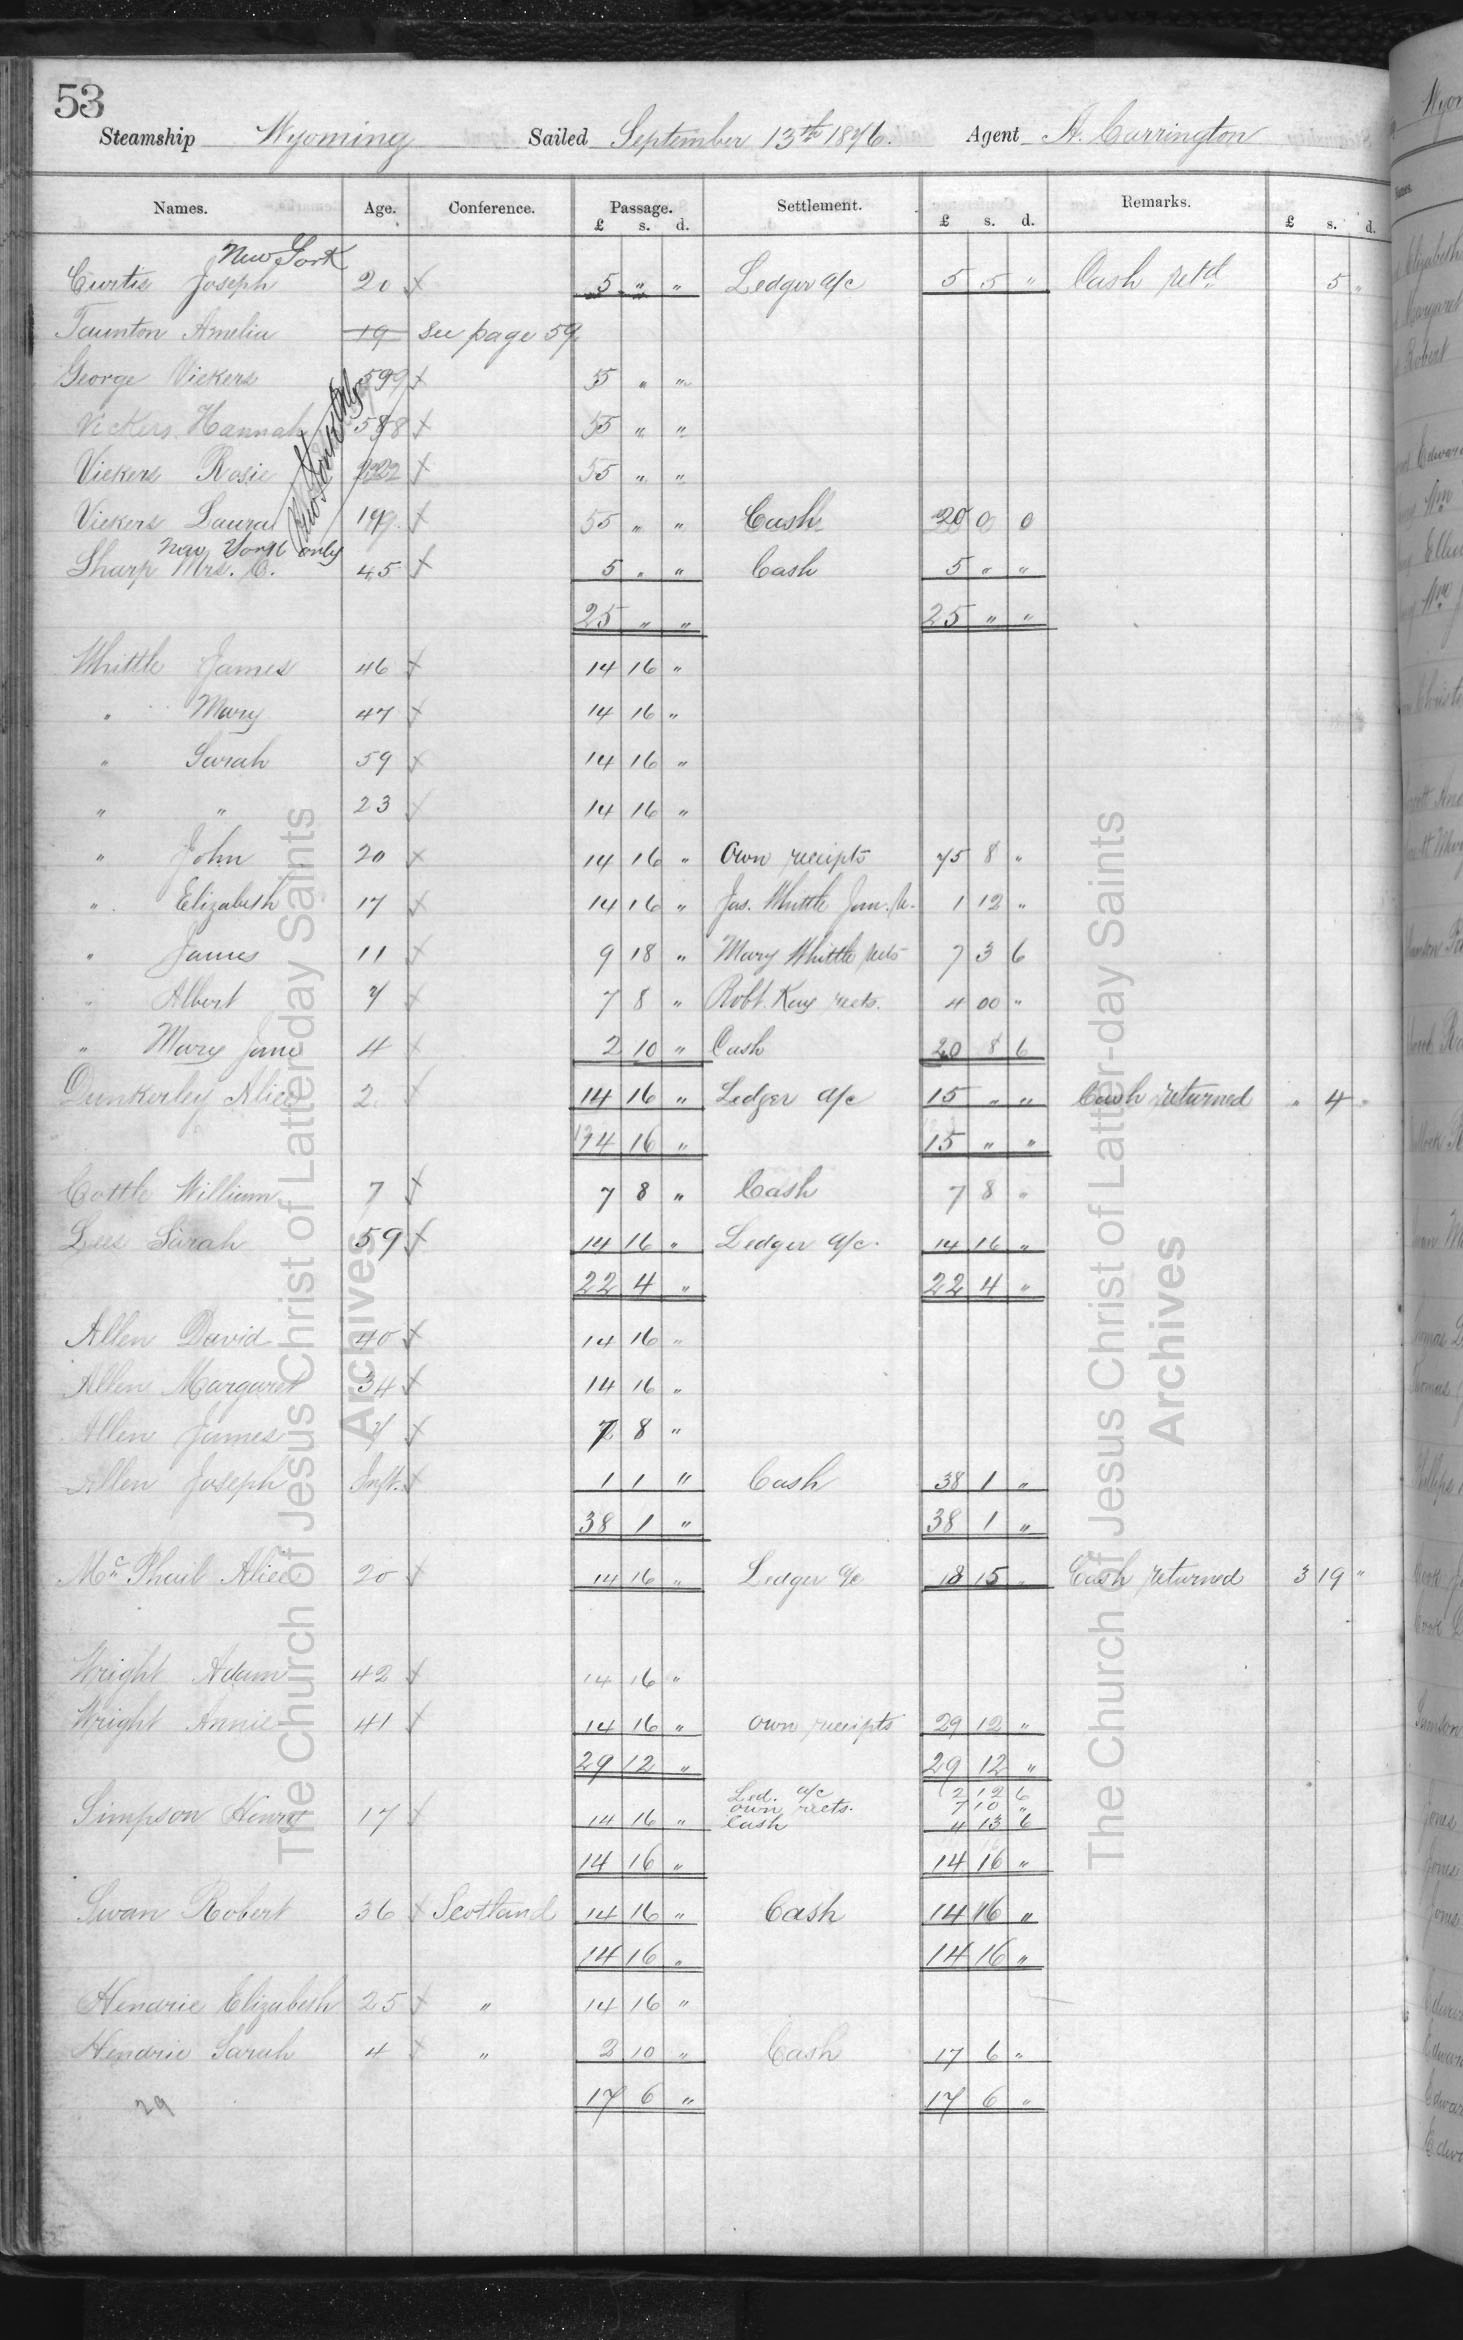 53
Steamship Wyoming Sailed September 13th 1876. Agent A. Carrington
Names. Age. Conference. Passage. £ s. d. Settlement. £ s. d. Remarks. £ s. d.
New York
Curtis Joseph 20 x 5 " " Ledger a/c 5 5 " Cash retd 5 "
Taunton Amelia 19 see page 59
George Vickers 59 x 5 " "
Vickers Hannah 58 x 5 " "
Vickers Rosie 22 x 5 " "
Vickers Laura 19 x 5 " " Cash 20 0 0
New York only
New York only
Sharp Mrs. C. 45 x 5 " " Cash 5 " "
25 " " 25 " "
Whittle James 46 x 14 16 "
" Mary 47 x 14 16 "
" Sarah 59 x 14 16 "
" " 23 x 14 16 "
" John 20 x 14 16 " Own receipts 75 8 "
" Elizabeth 17 x 14 16 " Jas. Whittle Jun. 1 12 "
" James 11 x 9 18 " Mary Whittle rects 7 3 6
" Albert 7 x 7 8 " Robt. Kay rects. 4 00 "
" Mary Jane 4 x 2 10 " Cash 20 8 6
Dunkerley Alice 2 x 14 16 " Ledger a/c 15 " " Cash returned " 4 "
14 16 " 15 " "
Cottle William 7 x 7 8 " Cash 7 8 "
Lees Sarah 59 x 14 16 " Ledger a/c. 14 16 "
22 4 " 22 4 "
Allen David 40 x 14 16 "
Allen Margaret 34 x 14 16 "
Allen James 7 x 7 8 "
Allen Joseph Inft. x 1 1 " Cash 38 1 "
38 1 " 38 1 "
McPhail Alice 20 x 14 16 " Ledger a/c 18 15 " Cash returned 3 19 "
Wright Adam 42 x 14 16 "
Wright Annie 41 x 14 16 " own receipts 29 12 "
29 12 " 29 12 "
Led. a/c 2 12 6
own rects. 7 10 "
Simpson Henry 17 x 14 16 " Cash 4 13 6
14 16 " 14 16 "
Swan Robert 36 x Scotland 14 16 " Cash 14 16 "
14 16 " 14 16 "
Hendrie Elizabeth 25 x " 14 16 "
Hendrie Sarah 4 x " 2 10 " Cash 17 6 "
29 17 6 " 17 6 "
The Church of Jesus Christ of Latter-day Saints
Archives
The Church of Jesus Christ of Latter-day Saints
Archives